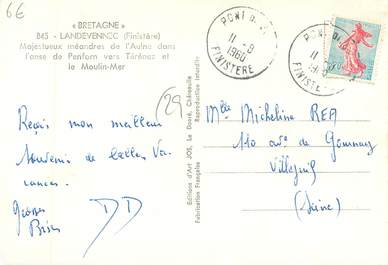 6€
« BRETAGNE »
845 - LANDÉVENNEC (Finistère)
Majestueux méandres de l'Aulne dans
l'anse de Penforn vers Térénez et
le Moulin-Mer
29
Reçois mon meilleur
souvenir de belles Va-
cances.
Grosses
Bises
DD
Editions d'Art JOS, Le Doaré, Châteaulin
Reproduction Interdite
Fabrication Française
PONT D
11 - 8
1960
FINISTERE
PONT D
11
1960
FINISTE
Mlle Micheline REA
110 av. de Gournay
Villejuif
(Seine)